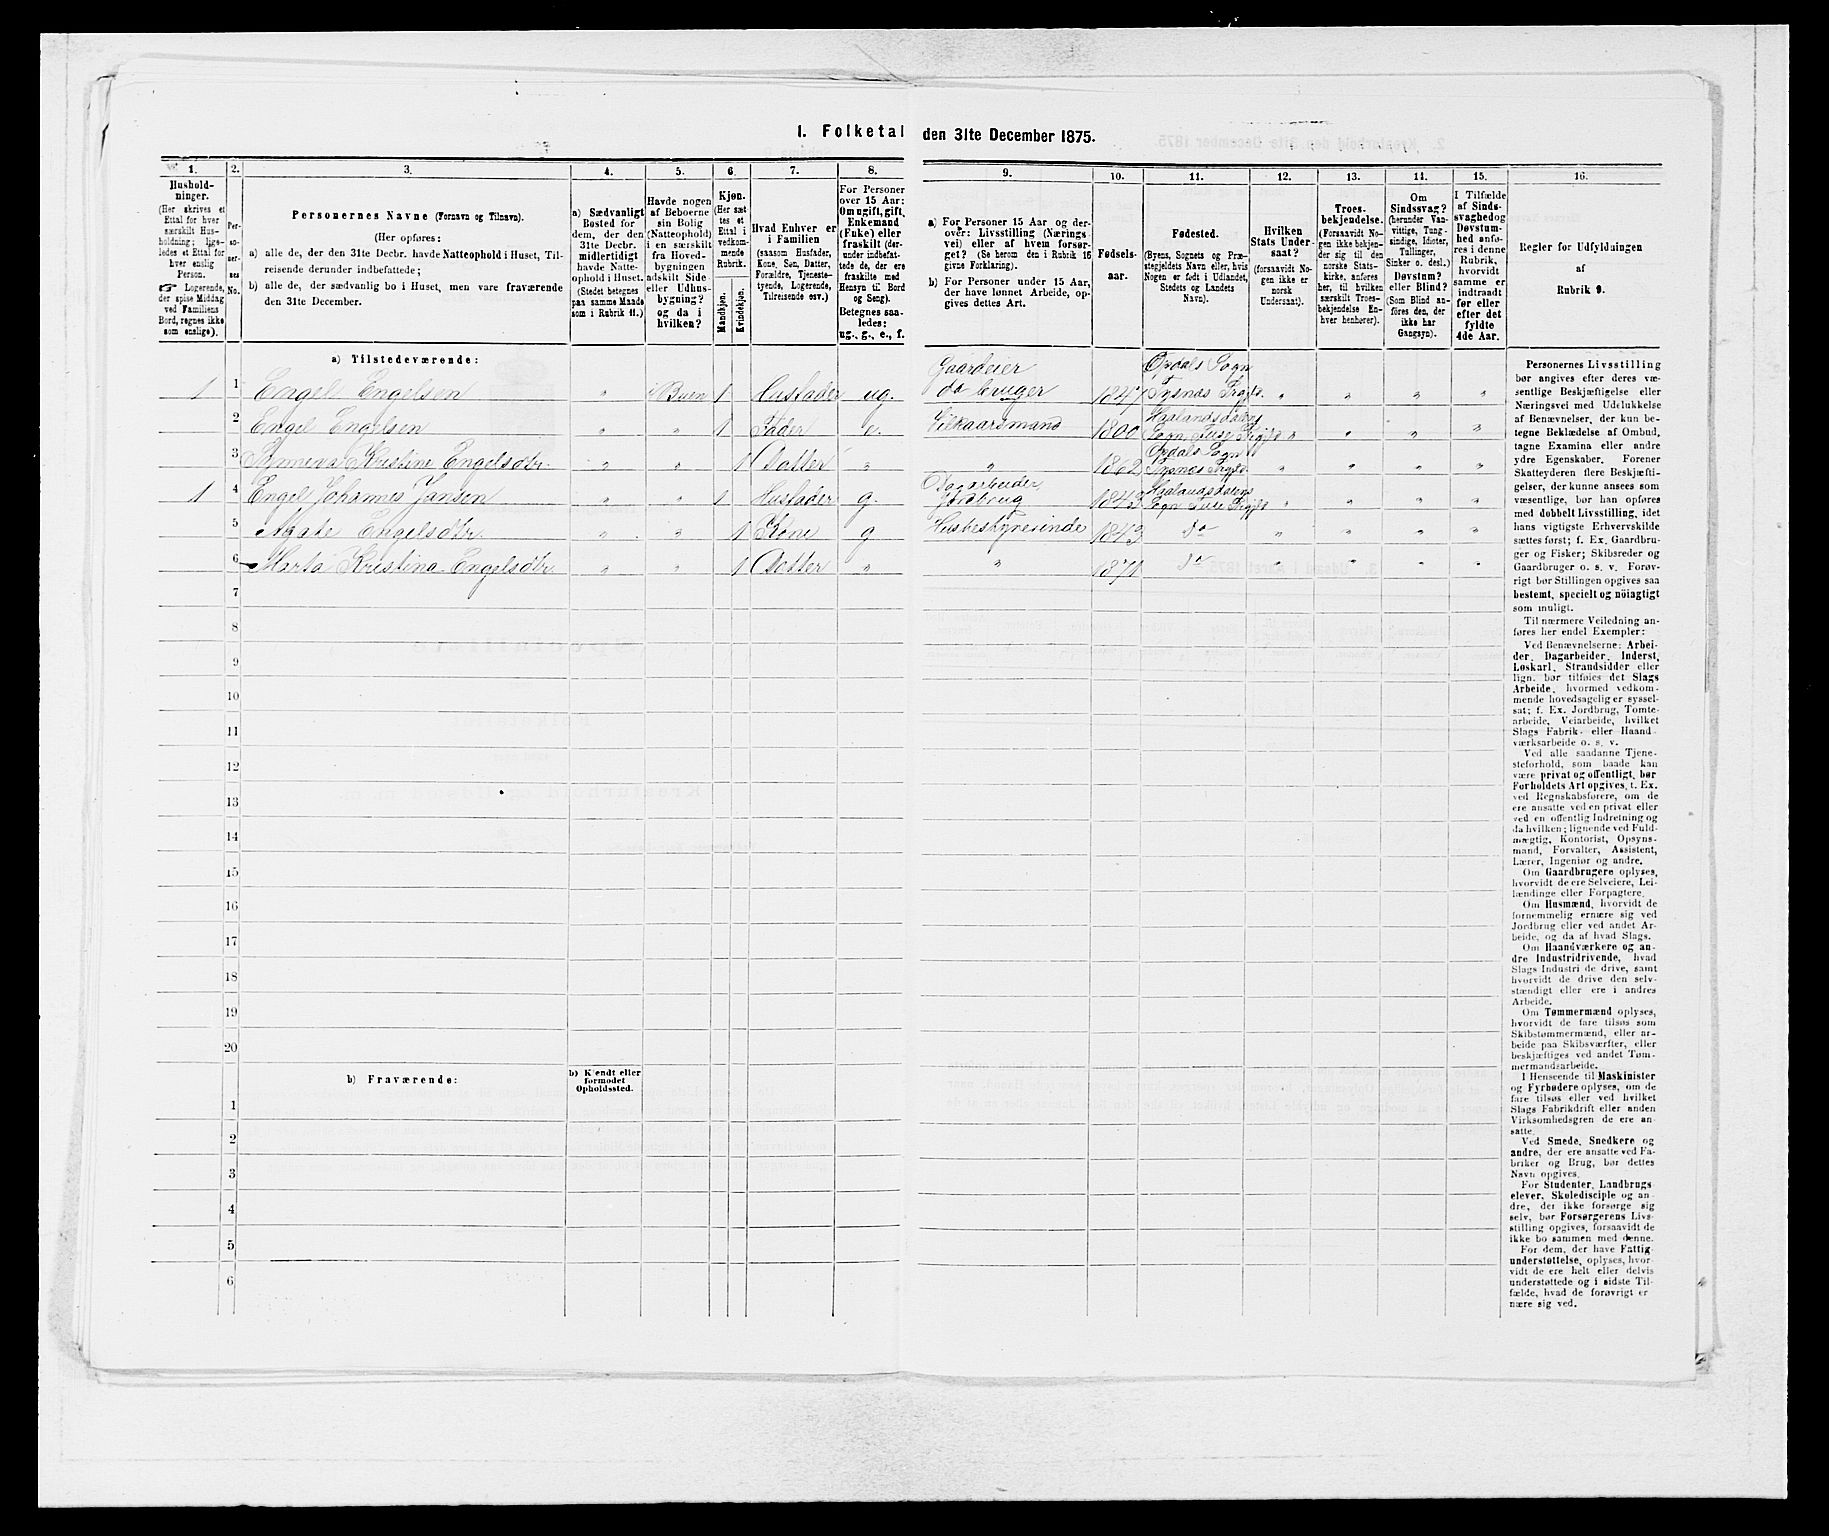 1. Folketal den 31te December 1875.
1. 2. 3. 4. 5. 6. 7. 8. 9. 10. 11. 12. 13. 14. 15. 16.
Hushold-
ninger.
(Her skrives et
Ettal for hver
særskilt Hus-
holdning; lige-
ledes et Ettal for
hver enslig
Person.
☞ Logerende,
der spise Middag
ved Familiens
Bord, regnes ikke
som enslige).
Per-
so-
ner-
nes
No.
Personernes Navne (Fornavn og Tilnavn).
(Her opføres:
a) alle de, der den 31te Decbr. havde Natteophold i Huset, Til-
reisende derunder indbefattede;
b) alle de, der sædvanlig bo i Huset, men vare fraværende
den 31te December.
a) Sædvanligt
Bosted for
dem, der den
31te Decbr.
midlertidigt
havde Natte-
ophold i Huset.
(Stedet betegnes
paa samme Maade
som i Rubrik 11.)
Havde nogen
af Beboerne
sin Bolig
(Natteophold)
i en særskilt
fra Hoved-
bygningen
adskilt Side-
eller Udhus-
bygning?
og da i
hvilken?
Kjøn.
(Her sæt-
tes et
Ettal i
vedkom-
mende
Rubrik.
Mandkjøn.
Kvindekjøn.
Hvad Enhver er
i Familien
(saasom Husfader,
Kone, Søn, Datter,
Forældre, Tjeneste-
tyende, Logerende,
Tilreisende osv.)
For Personer
over 15 Aar:
Om ugift, gift,
Enkemand
(Enke) eller
fraskilt (der-
under indbefat-
tede de, der ere
fraskilte med
Hensyn til Bord
og Seng).
Betegnes saa-
ledes:
ug., g., e., f.
a) For Personer 15 Aar og der-
over: Livsstilling (Nærings-
vei) eller af hvem forsør-
get? (Se herom den i Rubrik 16
givne Forklaring).
b) For Personer under 15 Aar,
der have lønnet Arbeide, op-
gives dettes Art.
Fødsels-
aar.
Fødested.
(Byens, Sognets og Præ-
stegjeldets Navn eller, hvis
Nogen er født i Udlandet,
Stedets og Landets
Navn).
Hvilken
Stats Under-
saat?
(forsaavidt No-
gen ikke er
norsk
Undersaat).
Troes-
bekjendelse.
(Forsaavidt No-
gen ikke bekjen-
der sig til den
norske Stats-
kirke, anføres
her, til hvilken
særskilt Troes-
bekjendelse En-
hver henhører).
Om
Sindssvag?
(herunder Van-
vittige, Tung-
sindige, Idioter,
Tullinger,
Sinker o. desl.)
Døvstum?
eller Blind?
(Som Blind an-
føres den, der
ikke har
Gangsyn).
I Tilfælde
af Sinds-
svaghed og
Døvstum-
hed anfø-
res i denne
Rubrik,
hvorvidt
samme er
indtraadt
før eller
efter det
fyldte
4de Aar.
Regler for Udfyldningen
af
Rubrik 9.
a) Tilstedeværende:
1 1 Engel Engelsen " i Buen 1 Husfader ug. Gaardeier da bruger 1847 Opdals Sogn Tysnæs Prgjld. " " " "
2 Engel Engelsen " " 1 Fader e. Vilkaarsmand 1800 Haalandsdalens Sogn Fuse Prgjld " " " "
3 Kristine Engelsdtr. " " 1 Datter " " 1862 Opdals Sogn Tysnæs Prgjld. " " " "
1 4 Engel Johannes Jansen " " 1 Husfader g. Dagarbeider Jordbrug 1843 Haalandsdalens Sogn Fuse Prgjld " " " "
5 Agate Engelsdtr. " " 1 Kone g Husbestyrerinde 1843 Do " " " "
6 Marta Kristina Engelsdtr. " " 1 Datter " " 1871 Do " " " "
7
8
9
10
11
12
13
14
15
16
17
18
19
20
b) Fraværende:
b) Kjendt eller
formodet
Opholdssted.
1
2
3
4
5
6
Personernes Livsstilling
bør angives efter deres væ-
sentlige Beskjæftigelse eller
Næringsvei med Udelukkelse
af Benævnelser, der kun be-
tegne Beklædelse af Ombud,
tagne Examina eller andre
ydre Egenskaber. Forener
Skatteyderen flere Beskjæfti-
gelser, der kunne ansees som
væsentlige, bør han opføres
med dobbelt Livsstilling, idet
hans vigtigste Erhvervskilde
sættes først; f. Ex. Gaardbru-
ger og Fisker; Skibsreder og
Gaardbruger o. s. v. Forøv-
rigt bør Stillingen opgives saa
bestemt, specielt og nöiagtigt
som muligt.
Til nærmere Veiledning an-
føres her endel Exempler:
Ved Benævnelserne: Arbei-
der, Dagarbeider, Inderst,
Løskarl, Strandsidder eller
lign. bør tilføies det Slags
Arbeide, hvormed vedkom-
mende hovedsagelig er syssel-
sat; f. Ex. Jordbrug, Tomte-
arbeide, Veiarbeide, hvilket
Slags Fabrik- eller Haand-
værksarbeide o. s. v.
Ved alle saadanne Tjene-
steforhold, som baade kan
være privat og offentligt, bør
Forholdets Art opgives, t. Ex.
ved Regnskabsførere, om de
ere ansatte ved en privat eller
ved en offentlig Indretning og
da hvilken; lignende ved Fuld-
mægtig, Kontorist, Opsyns-
mand, Forvalter, Assistent,
Lærer, Ingeniør og andre.
Om Gaardbrugere oplyses,
hvorvidt de ere Selveiere, Lei-
lændinge eller Forpagtere.
Om Husmænd, hvorvidt de
fornemmelig ernære sig ved
Jordbrug eller ved andet Ar-
beide, og da af hvad Slags.
Om Haandværkere og an-
dre Industridrivende, hvad
Slags Industri de drive, samt
hvorvidt de drive den selv-
stændigt eller ere i andres
Arbeide.
Om Tømmermænd oplyses,
hvorvidt de fare tilsøs som
Skibstømmermænd, eller ar-
beide paa Skibsværfter, eller
beskjæftiges ved andet Tøm-
mermandsarbeide.
I Henseende til Maskinister
og Fyrbødere oplyses, om de
fare tilsøs eller ved hvilket
Slags Fabrikdrift eller anden
Virksomhedsgren de ere an-
satte.
Ved Smede, Snedkere og
andre, der ere ansatte ved Fa-
briker og Brug, bør dettes
Navn opgives.
For Studenter, Landbrugs-
elever, Skoledisciple og an-
dre, der ikke forsørge sig
selv, bør Forsørgerens Livs-
stilling opgives, forsaavidt de
ikke bo sammen med denne.
For dem, der have Fattig-
understøttelse, oplyses, hvor-
vidt de ere helt eller delvis
understøttede og i sidste Til-
fælde, hvad de forøvrigt er
nære sig ved.